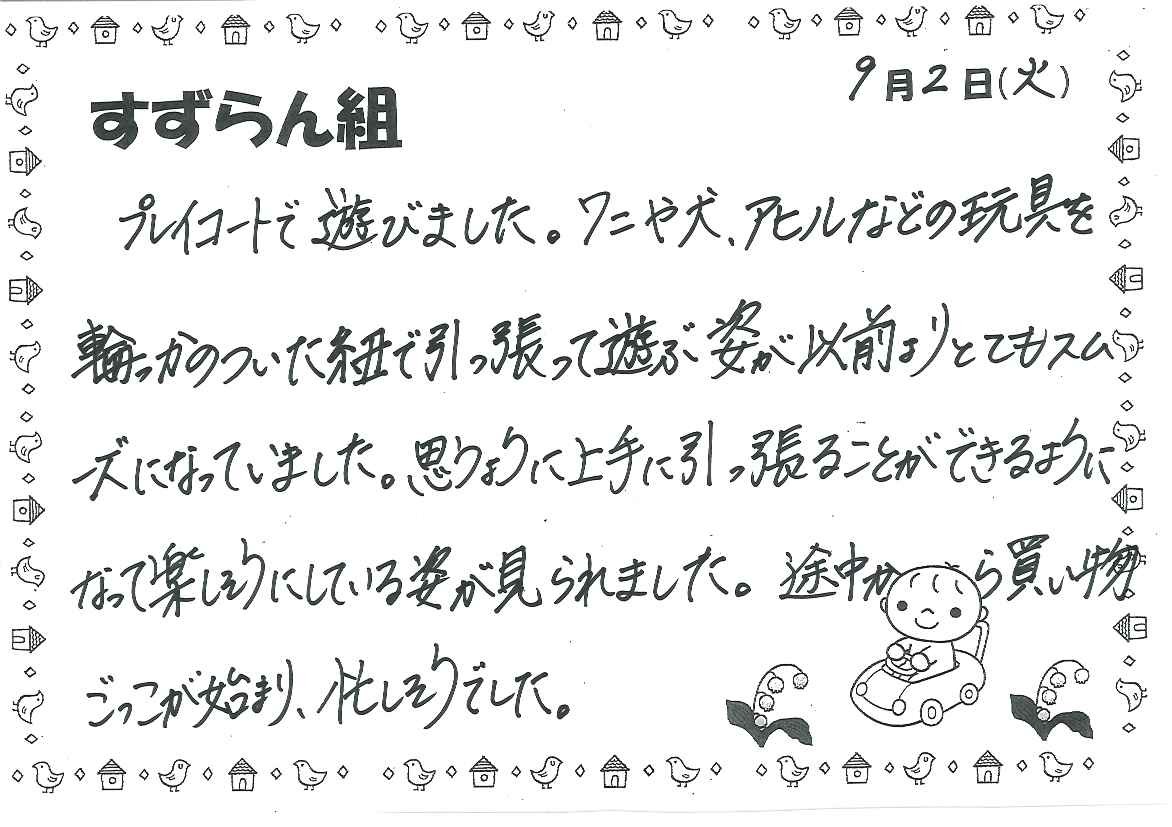 9月2日(火)
すずらん組
プレイコートで遊びました。ワニや犬、アヒルなどの玩具を
輪っかのついた紐で引っ張って遊ぶ姿が以前よりとてもスム
ーズになっていました。思うように上手に引っ張ることができるように
なって楽しそうにしている姿が見られました。途中から買い物
ごっこが始まり、忙しそうでした。